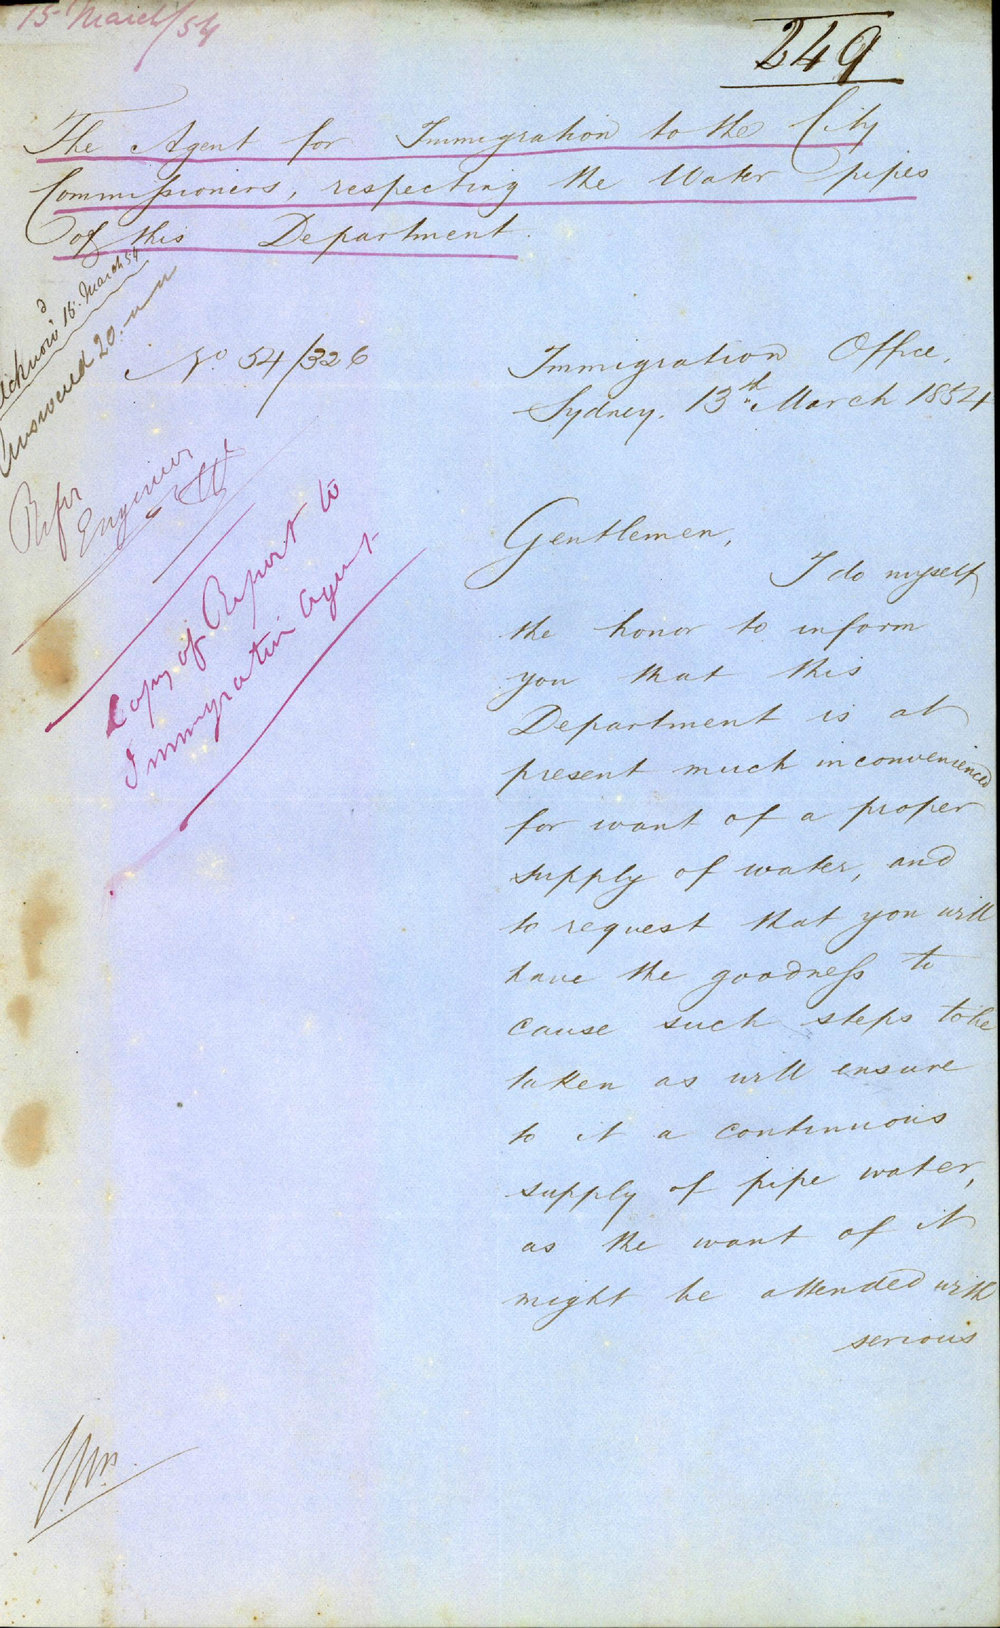 15 March/54
249
The Agent for Immigration to the City
Commissioners, respecting the Water pipes
of this Department.
Ackno'd 15. March 54
Answered 20. " "
No 54/326
Immigration Office,
Sydney. 13th March 1854
Refer
Engineer
Copy of Report to
Immigration Agent
Gentlemen,
I do myself
the honor to inform
you that this
Department is at
present much inconvenienced
for want of a proper
supply of water, and
to request that you will
have the goodness to
cause such steps to be
taken as will ensure
to it a continuous
supply of pipe water,
as the want of it
might be attended with
serious